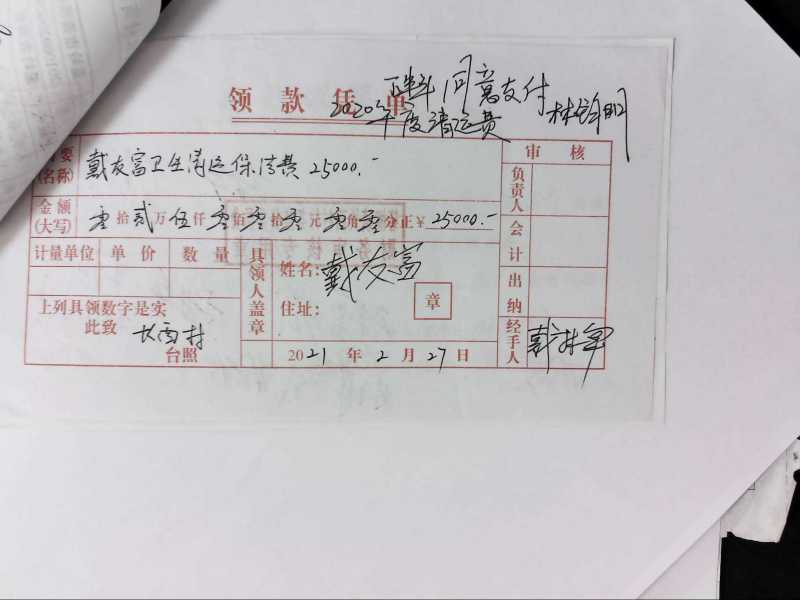 领款凭单
同意支付
2020年度清运费
摘要
(名称)
戴友富卫生清运保洁费 25000.-
审核
负责人
会计
出纳
经手人
金额
(大写)
零拾贰万伍仟零佰零拾零元零角零分正¥25000.-
计量单位 单价 数量
具领人盖章
姓名: 戴友富
住址:
章
上列具领数字是实
此致
台照
2021年2月27日